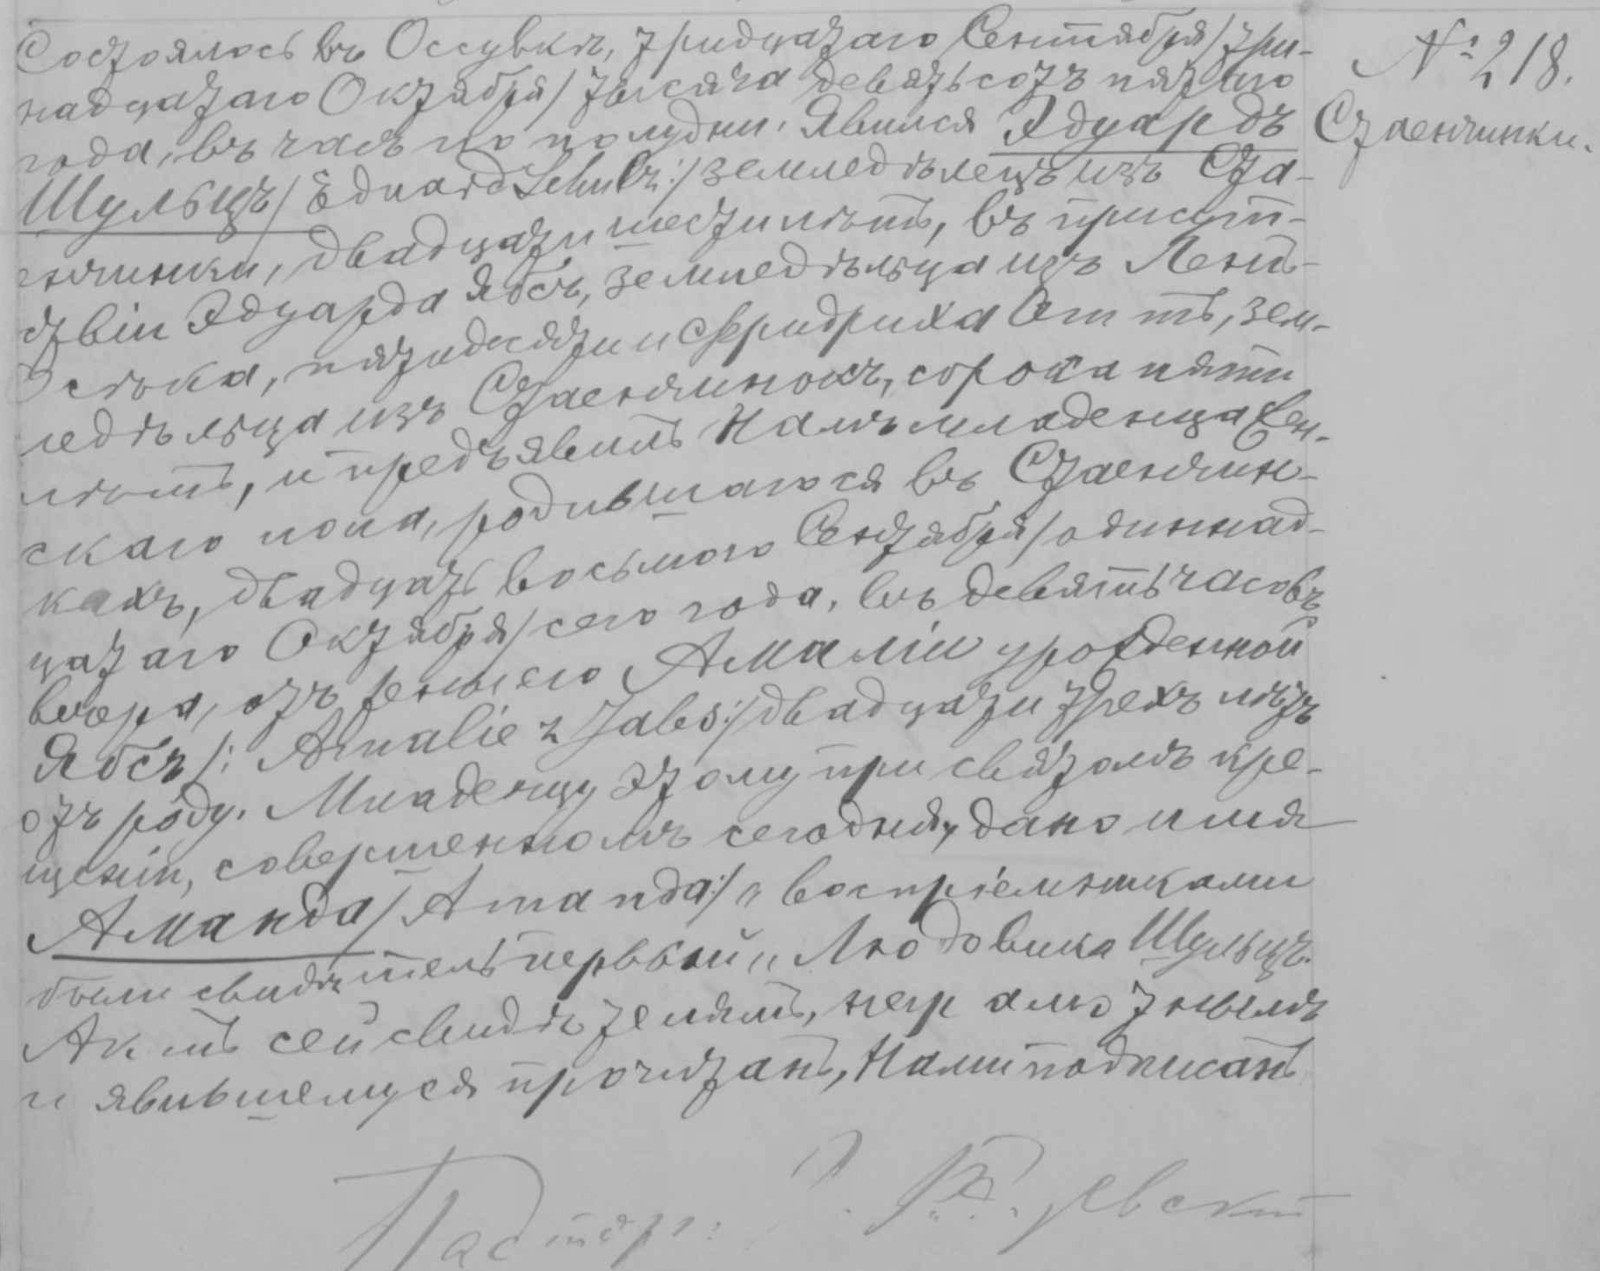 Состоялось въ Оссувкѣ, тридцатаго Сентября /три-
надцатаго Октября/ тысяча девятьсотъ пятаго
года, въ часъ по полудни. Явился Эдуардъ
Шульцъ /: Eduard Schulz :/ земледѣлецъ изъ Ста-
енчинки, двадцати шести лѣтъ, въ присут-
ствіи Эдуарда Ябсъ, земледѣльца изъ
пятидесяти и Фридриха Оттъ, зем-
ледѣльца изъ Стаенчинокъ, сорока пяти
лѣтъ, и предъявилъ Намъ младенца жен-
скаго пола, родившагося въ Стаенчин-
кахъ, двадцать восьмого Сентября /одиннад-
цатаго Октября/ сего года, въ девять часовъ
вечера, отъ женыего Амаліи урожденной
Ябсъ /: Amalie z Jabs :/ двадцати трехъ лѣтъ
отъ роду. Младенцу этому при святомъ кре-
щеніи, совершенномъ сегодня, дано имя
Аманда /: Amanda :/ " воспріемниками
были свидѣтель первый " Людовика Шульцъ.
Актъ сей свидѣтелямъ, неграмотнымъ
и явившемуся прочитанъ, Нами подписанъ
Пасторъ:
№ 218.
Стаенчинки.